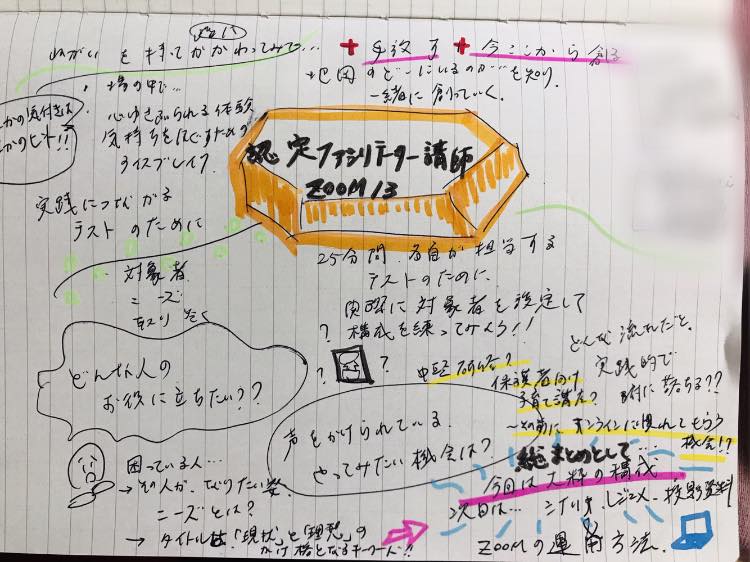 ねがい を 持って かかわってみて…
+ 手放す + 今ここから創る
地図のどこにいるのかを知り、
一緒に創っていく。
・場の中で…
心ゆさぶられる体験
気持ちをほぐすための
アイスブレイク
の気付きは
のヒト!!
認定ファシリテーター講師
ZOOM 13
実践につながる
テストのために
対象者
ニーズ
25分間、各自が担当する
テストのために、
実際に対象者を設定して
構成を練ってみよう!!
? ? ?
どんな人の
お役に立ちたい??
どんな流れだと、
実践的で
腑に落ちる??
保護者向け
子育て講座?
〜の前に オンラインに慣れてもらう
機会!?
声をかけられている、
やってみたい機会は?
総まとめとして…
今回は大枠の構成
次回は… シナリオ、レジュメ、投影資料
ZOOMの運用方法。
困っている人…
→ その人が、なりたい姿
ニーズとは?
→ タイトルは、「現状」と「理想」の
かけ橋となるキーワード!!